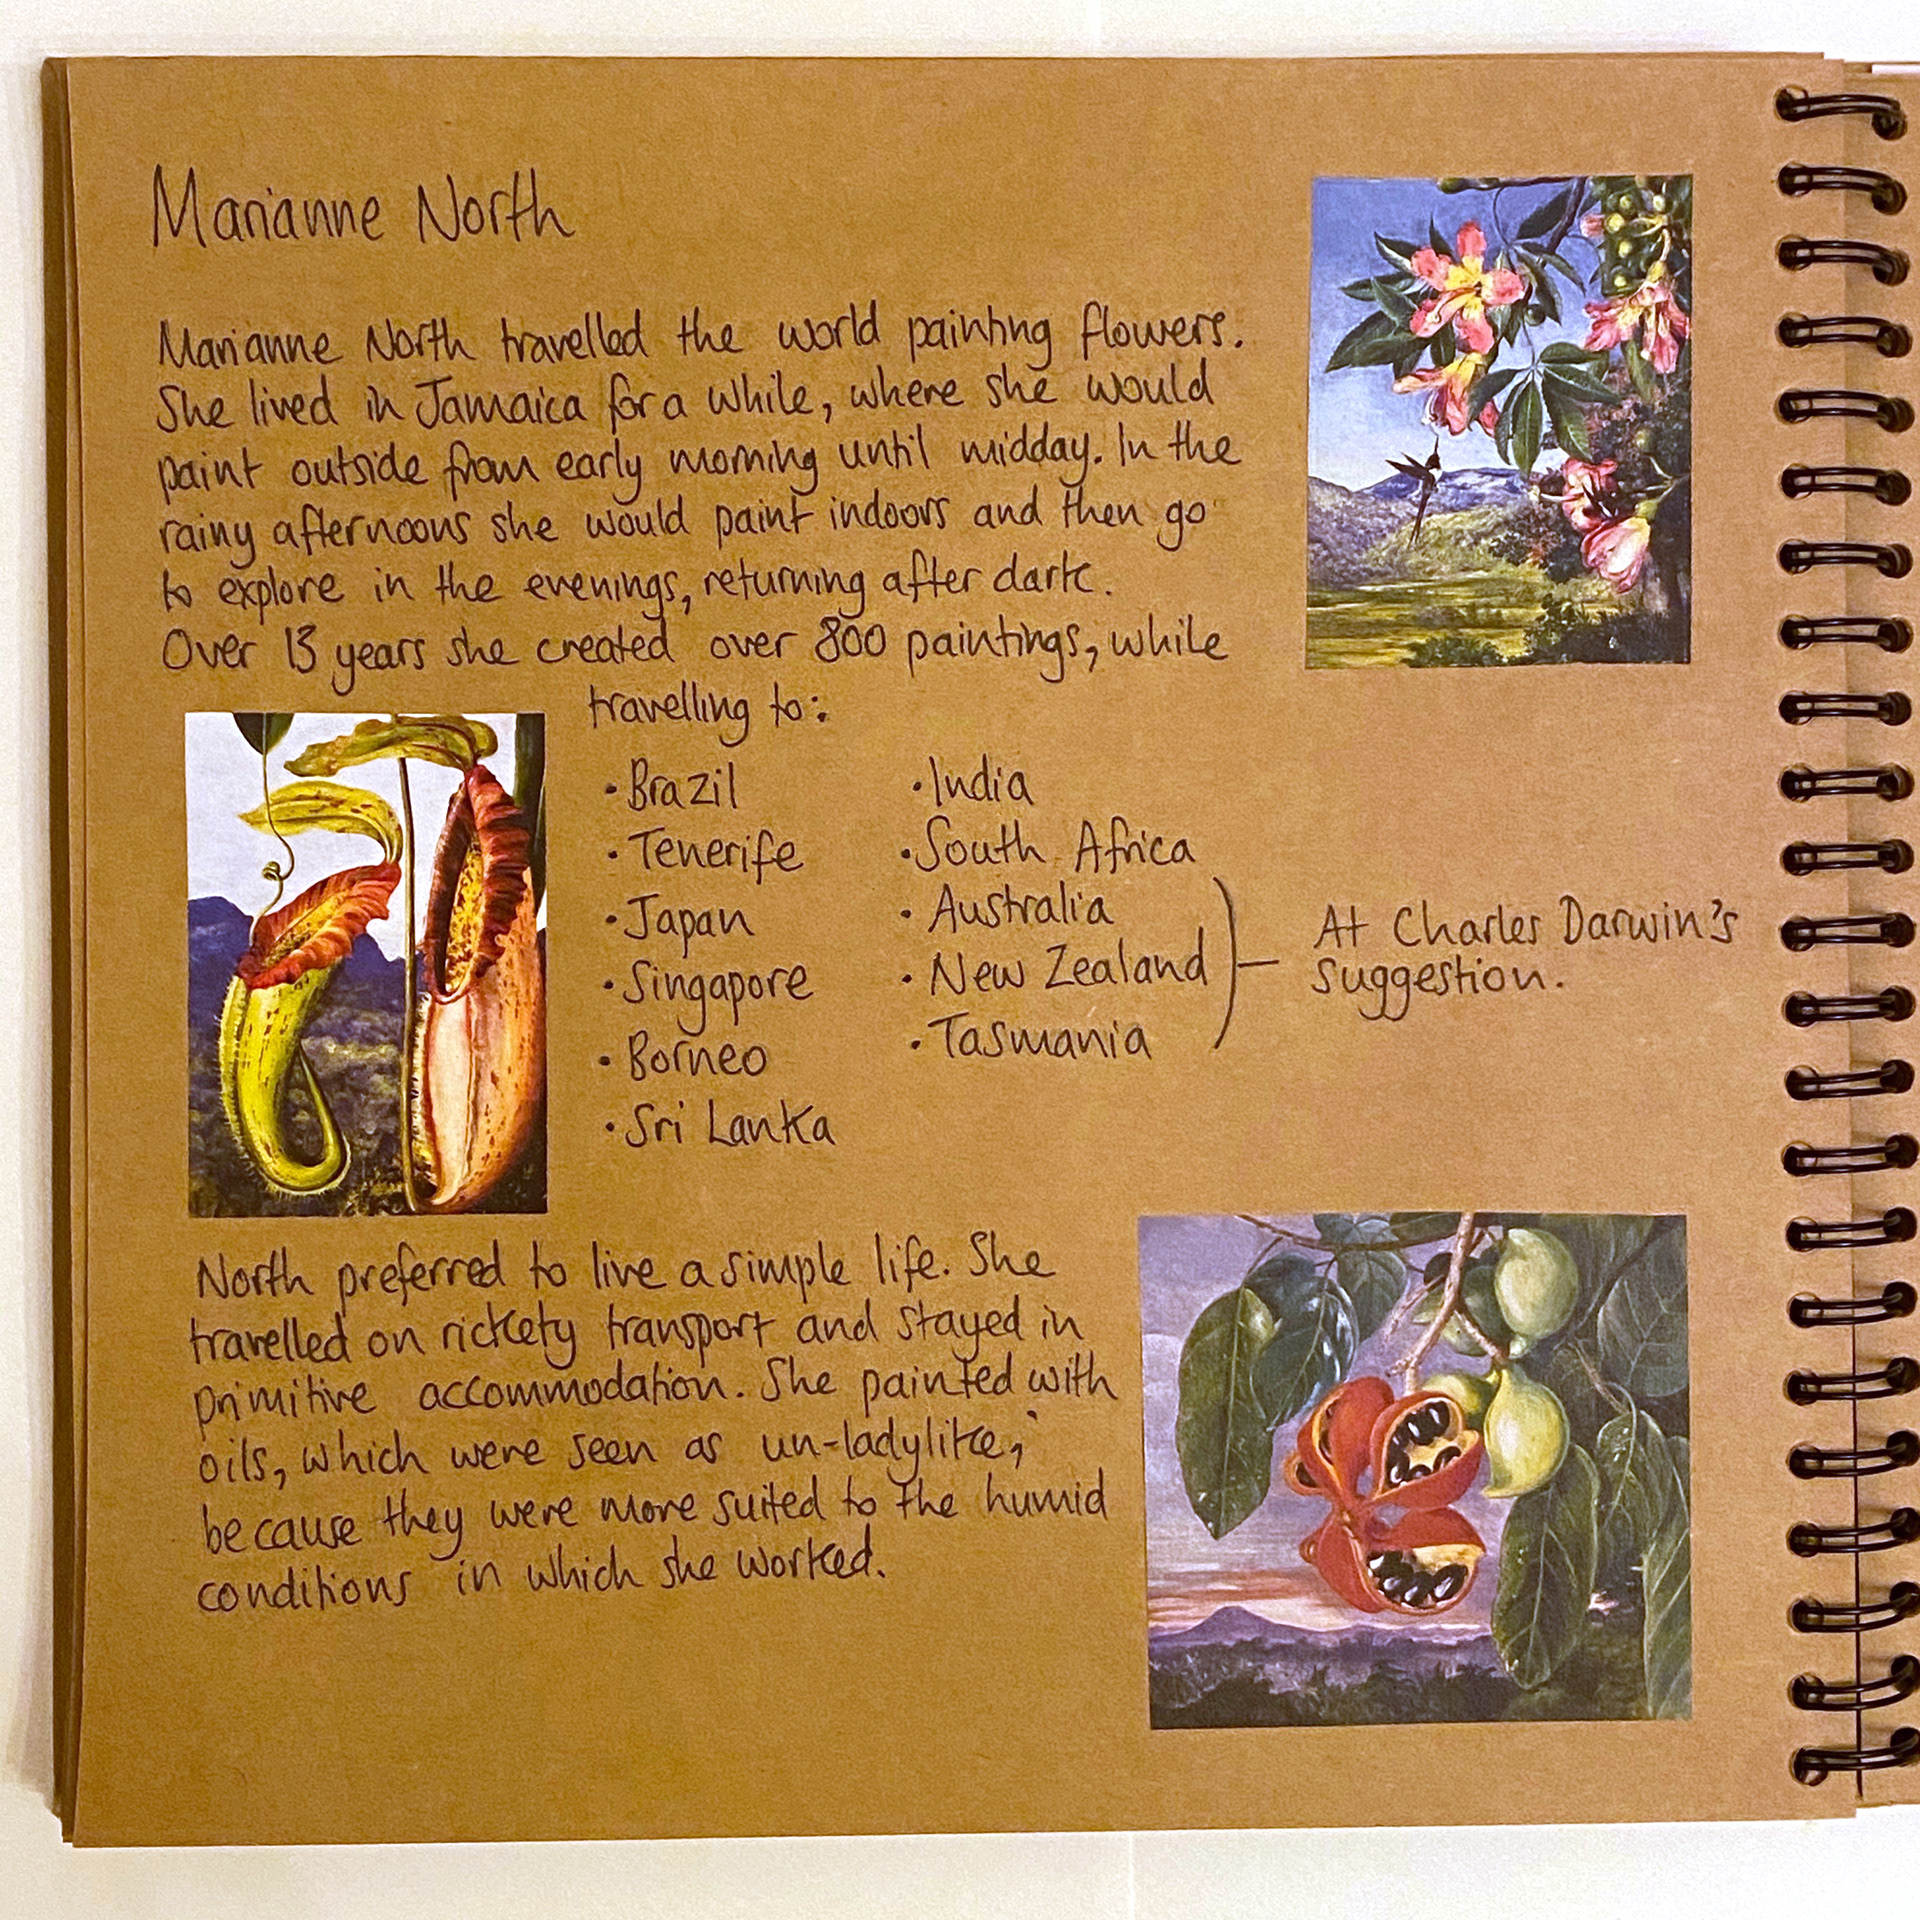 Marianne North
Marianne North travelled the world painting flowers.
She lived in Jamaica for a while, where she would
paint outside from early morning until midday. In the
rainy afternoons she would paint indoors and then go
to explore in the evenings, returning after dark.
Over 13 years she created over 800 paintings, while
travelling to:
• Brazil
• Tenerife
• Japan
• Singapore
• Borneo
• Sri Lanka
• India
• South Africa
• Australia
• New Zealand
• Tasmania
At Charles Darwin's
suggestion.
North preferred to live a simple life. She
travelled on rickety transport and stayed in
primitive accommodation. She painted with
oils, which were seen as un-ladylike,
because they were more suited to the humid
conditions in which she worked.